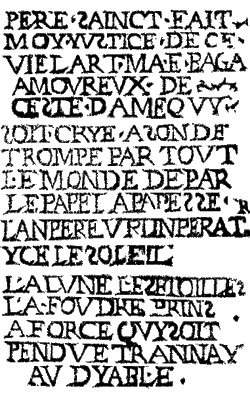 PERE·SAINCT·FAIT·
MOY·YVSTICE·DE·CE·
VIELART·MA·E·BAGA
AMOVREVX·DE
CESTE·DAMEQVY·
SOIT·CRYE·ASONDE
TROMPE PAR TOVT
LE MONDE DE PAR
LE PAPE LAPAPESSE·
LANPEREVR LINPERAT R
YCE LE SOLEIL
LA LVNE LESETOILLES
LA·FOVDRE PRINS
A FORCE QVYSOIT
PENDVE TRANNAY
AV DYABLE.